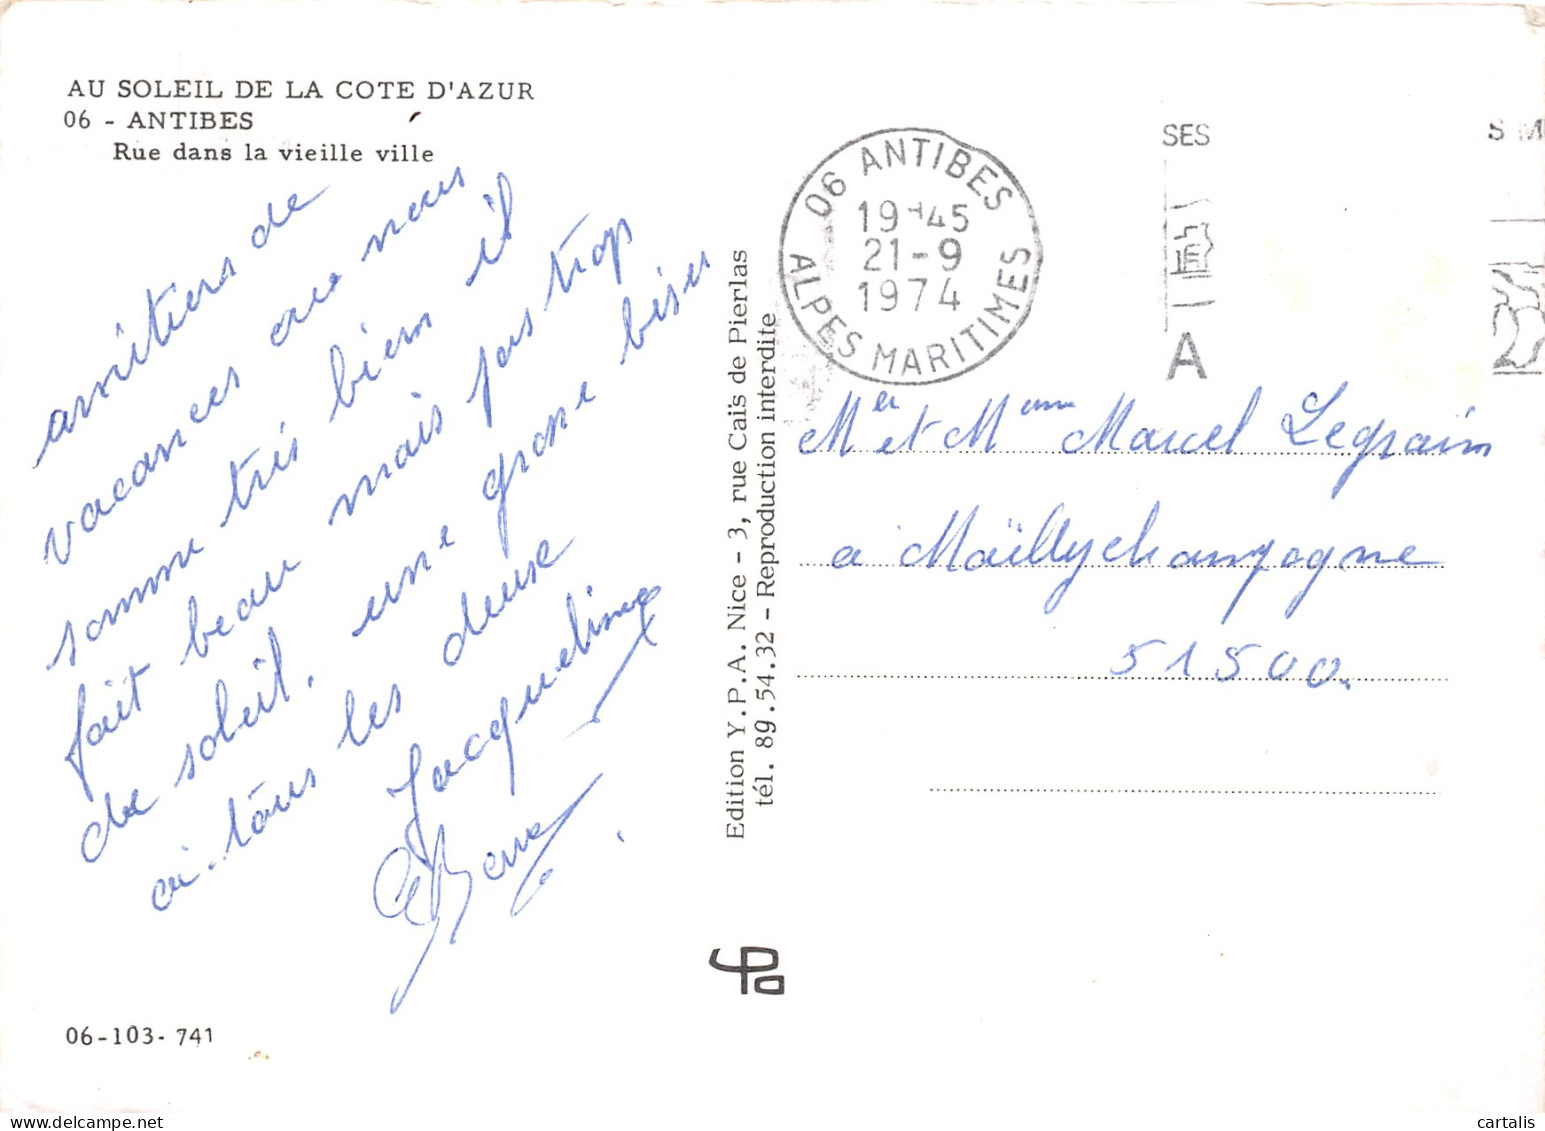 AU SOLEIL DE LA COTE D'AZUR
06 - ANTIBES
Rue dans la vieille ville
amitiers de
vacances que nous
somme très bien il
fait beau mais pas trop
de soleil. une grosse bises
a tous les deuse
Jacqueline
06-103-741
Edition Y.P.A. Nice - 3, rue Caïs de Pierlas
tél. 89.54.32 - Reproduction interdite
06 ANTIBES
19H45
21-9
1974
ALPES MARITIMES
SES
A
S M
Mer et Mme Marcel Legrain
a Maïllychampagne
51500.
cartalis